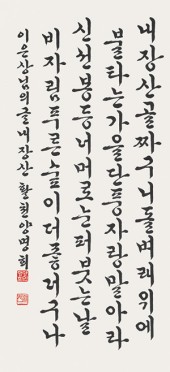 내장산골짜구니돌벼래위에
불타는가을단풍자랑말아라
신선봉등너머로눈퍼붓는날
비자림푸른숲이더좋더구나
이은상님의글내장산 황현양명희